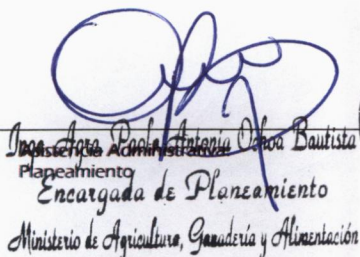 Inga. Agra. Paola Antonia Ochoa Bautista
Asistencia Administrativa
Planeamiento
Encargada de Planeamiento
Ministerio de Agricultura, Ganadería y Alimentación